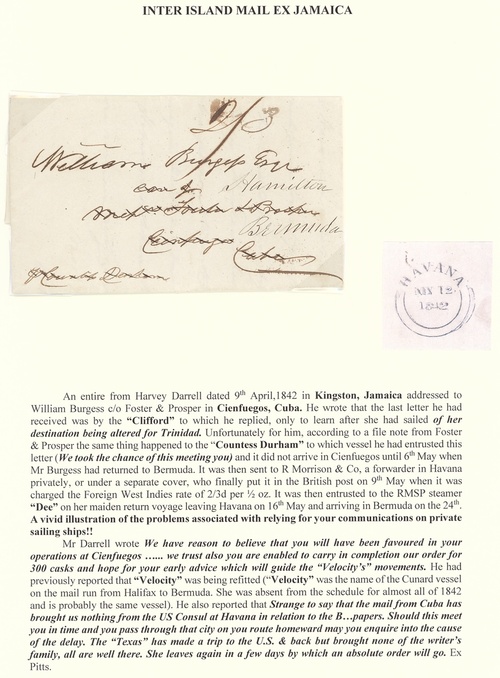 INTER ISLAND MAIL EX JAMAICA
2/3
William Burgess Esqr
care of Hamilton
Messrs Foster &
Bermuda
Cienfuegos
Cuba
Countess Durham
HAVANA
MY 12
1842
An entire from Harvey Darrell dated 9th April,1842 in Kingston, Jamaica addressed to
William Burgess c/o Foster & Prosper in Cienfuegos, Cuba. He wrote that the last letter he had
received was by the “Clifford” to which he replied, only to learn after she had sailed of her
destination being altered for Trinidad. Unfortunately for him, according to a file note from Foster
& Prosper the same thing happened to the “Countess Durham” to which vessel he had entrusted this
letter (We took the chance of this meeting you) and it did not arrive in Cienfuegos until 6th May when
Mr Burgess had returned to Bermuda. It was then sent to R Morrison & Co, a forwarder in Havana
privately, or under a separate cover, who finally put it in the British post on 9th May when it was
charged the Foreign West Indies rate of 2/3d per ½ oz. It was then entrusted to the RMSP steamer
“Dee” on her maiden return voyage leaving Havana on 16th May and arriving in Bermuda on the 24th.
A vivid illustration of the problems associated with relying for your communications on private
sailing ships!!
Mr Darrell wrote We have reason to believe that you will have been favoured in your
operations at Cienfuegos …... we trust also you are enabled to carry in completion our order for
300 casks and hope for your early advice which will guide the “Velocity’s” movements. He had
previously reported that “Velocity” was being refitted (“Velocity” was the name of the Cunard vessel
on the mail run from Halifax to Bermuda. She was absent from the schedule for almost all of 1842
and is probably the same vessel). He also reported that Strange to say that the mail from Cuba has
brought us nothing from the US Consul at Havana in relation to the B…papers. Should this meet
you in time and you pass through that city on you route homeward may you enquire into the cause
of the delay. The “Texas” has made a trip to the U.S. & back but brought none of the writer’s
family, all are well there. She leaves again in a few days by which an absolute order will go. Ex
Pitts.